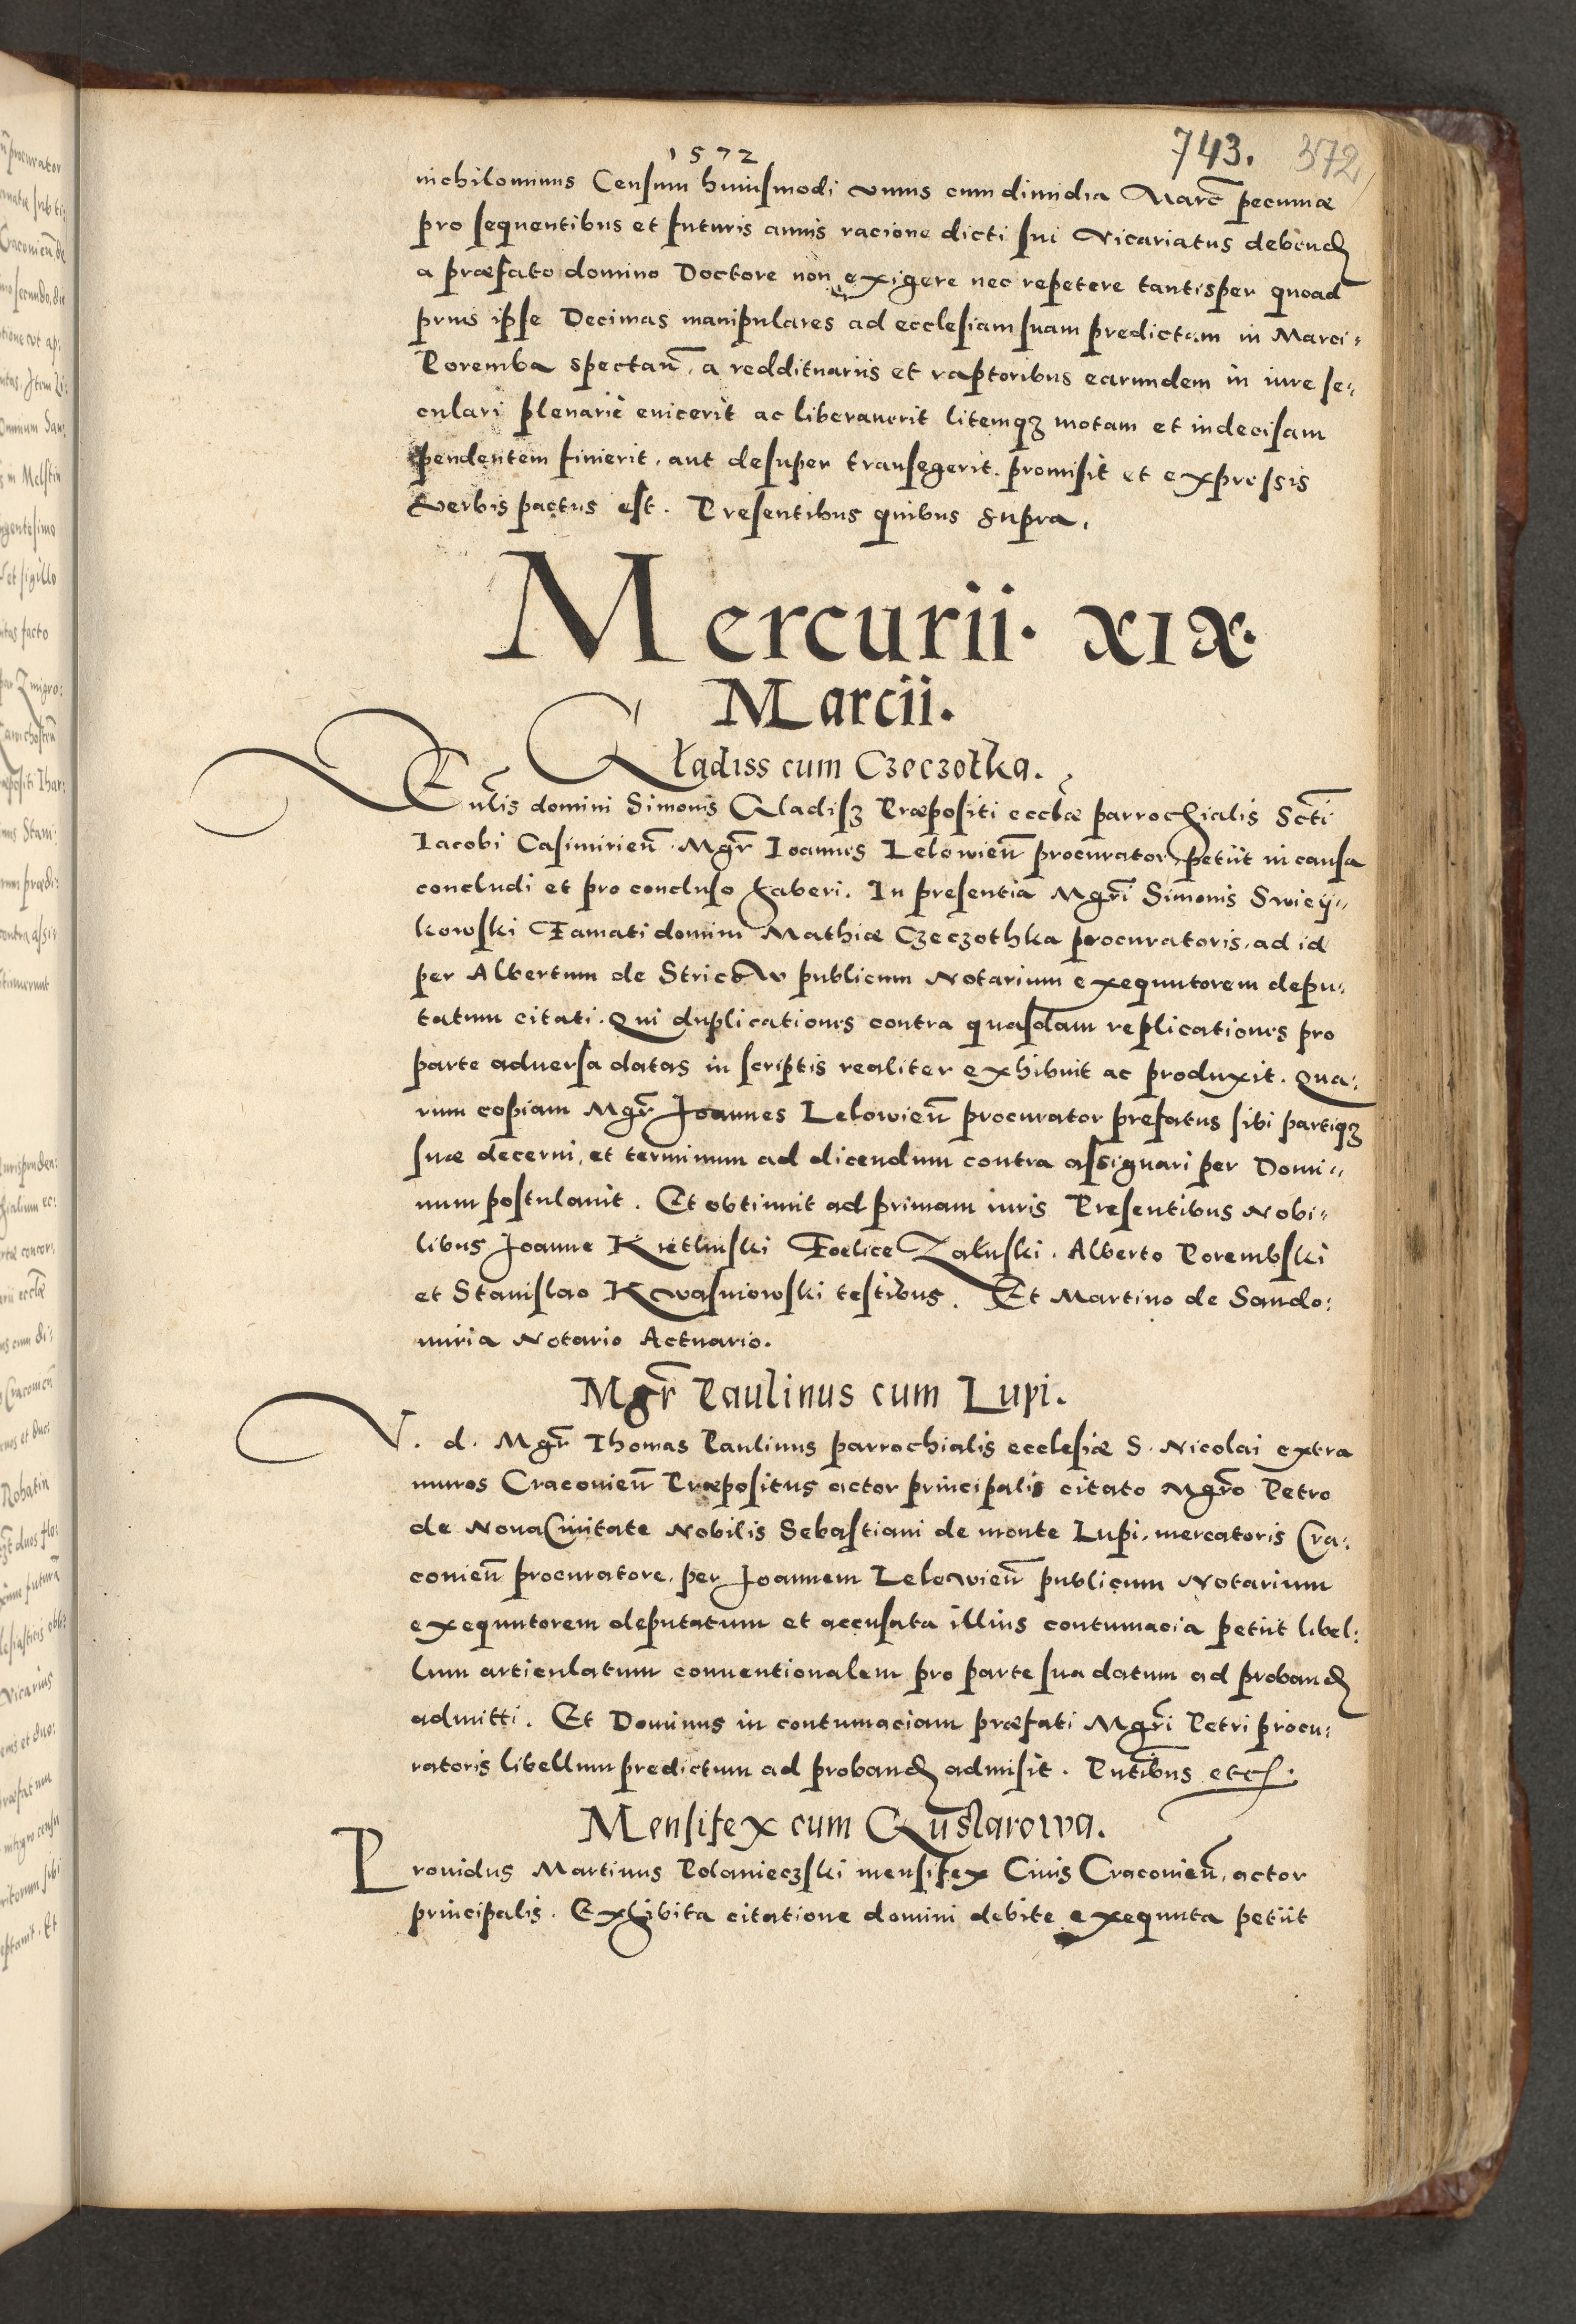 1572
743. 372
nichilominus Censum huiusmodi unius cum dimidia Marc̄ pecuniæ
pro sequentibus et futuris annis racione dicti sui Vicariatus debend
a præfato domino Doctore non exigere nec repetere tantisper quoad
prius ipse Decimas manipulares ad ecclesiam suam predictam in Marci-
Poremba spectan̄, a reddituariis et raptoribus earundem in iure se-
culari plenariè evicerit ac liberaverit litemqʒ motam et indecisam
pendentem finierit, aut desuper transegerit. promisit et expressis
verbis pactus est. Presentibus quibus supra.
Mercurii. XIX.
Marcii.
Kładiss cum Czeczotka.
Vēn̄lis domini Simonis Kladisʒ Præpositi eccl̄æ parrochialis Sctī
Iacobi Casimirien̄ Mgr̄ Ioannes Lelowien̄ procurator petiit in causa
concludi et pro concluso haberi. In presentia Mgrī Simonis Swiey-
kowski Famati domini Mathiæ Czeczothka procuratoris, ad id
per Albertum de Strickow publicum Notarium exequutorem depu-
tatum citati. Qui duplicationes contra quasdam replicationes pro
parte adversa datas in scriptis realiter exhibuit ac produxit. Qua-
rum copiam Mgr̄ Joannes Lelowien̄ procurator prefatus sibi partiqʒ
suæ decerni, et terminum ad dicendum contra assignari per Domi-
num postulavit. Et obtinuit ad primam iuris Presentibus Nobi-
libus Joanne Kietlinski Foelice Załuski. Alberto Porembski
et Stanislao Kwasniowski testibus. Et Martino de Sando-
miria Notario Actuario.
Mgr̄ Paulinus cum Lupi.
V. d. Mgr̄ Thomas Paulinus parrochialis ecclesiæ S. Nicolai extra
muros Cracovien̄ Præpositus actor principalis citato Mgrō Petro
de Nova Civitate Nobilis Sebastiani de monte Lupi, mercatoris Cra-
covien̄ procuratore, per Joannem Lelowien̄ publicum Notarium
exequutorem deputatum et accusata illius contumacia petiit libel-
lum articulatum conventionalem pro parte sua datum ad proband
admitti. Et Dominus in contumaciam præfati Mgrī Petri procu-
ratoris libellum predictum ad proband admisit. Pn̄tibus etc.
Mensifex cum Kuslarowa.
Providus Martinus Polanieczski mensifex Civis Cracovien̄, actor
principalis. Exhibita citatione domini debite exequuta petiit